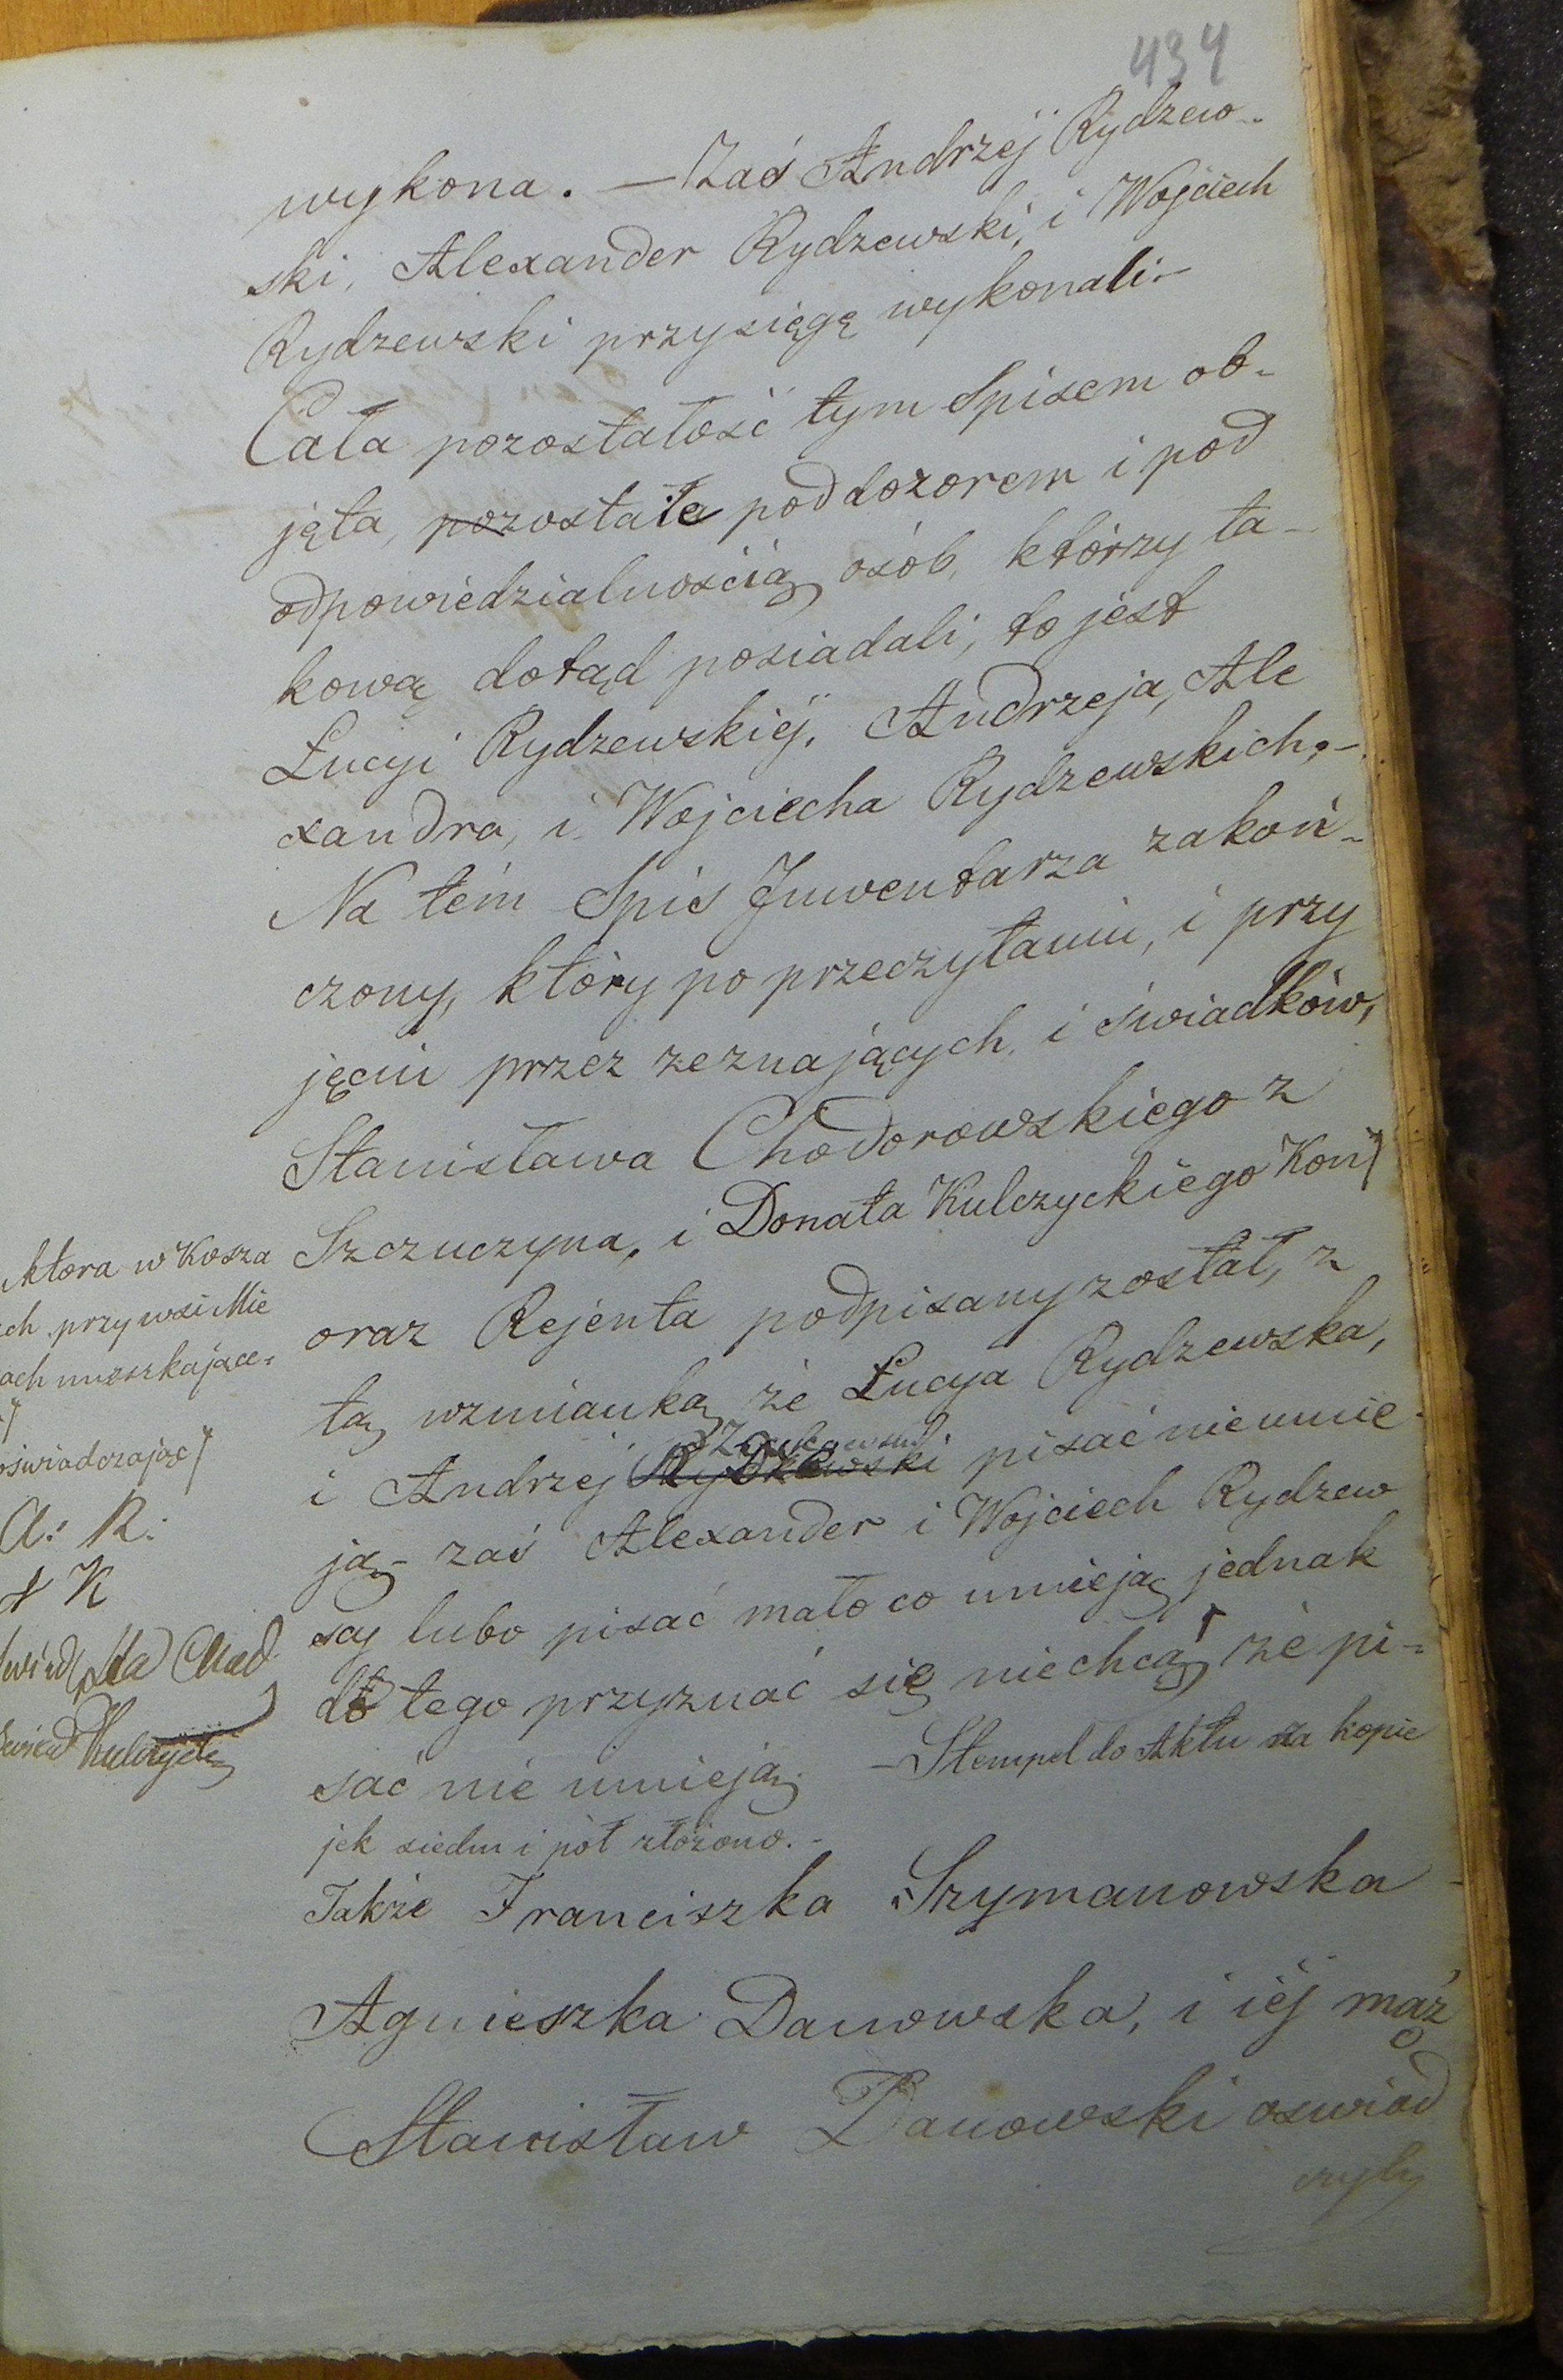 434
wykona. — Zaś Andrzej Rydzew-
ski, Alexander Rydzewski, i Wojciech
Rydzewski przysięgę wykonali.-
Cała pozostałość tym Spisem ob-
jęta, pozostałe pod dozorem i pod
odpowiedzialnością osób, którzy ta-
kową dotąd posiadali, to jest
Łucyi Rydzewskiej, Andrzeja, Ale
xandra, i Wojciecha Rydzewskich.-
Na tém Spis Inwentarza zakoń-
czony, który po przeczytaniu, i przy
jęciu przez zeznających, i świadków,
Stanisława Chodorowskiego z
Szczuczyna, i Donata Kulczyckiego Kon
oraz Rejenta podpisany został, z
tą wzmianką że Łucya Rydzewska,
i Andrzej Rydzewski pisać nieumie
ją- zaś Alexander i Wojciech Rydzew
scy lubo pisać mało co umieją jednak
do tego przyznać się niechcą że pi-
sać nie umieją. - Stempel do Aktu za kopie
jek siedm i pół złożono.-
Także Franciszka Szymanowska
Agnieszka Danowska, i iéj mąż
Stanisław Danowski oswiad
czyli
ktora w Kosza
ch przy wsi Mie
ach mieszkające.
oświadczając
A: R:
K
Sta Chod
Kulczycki